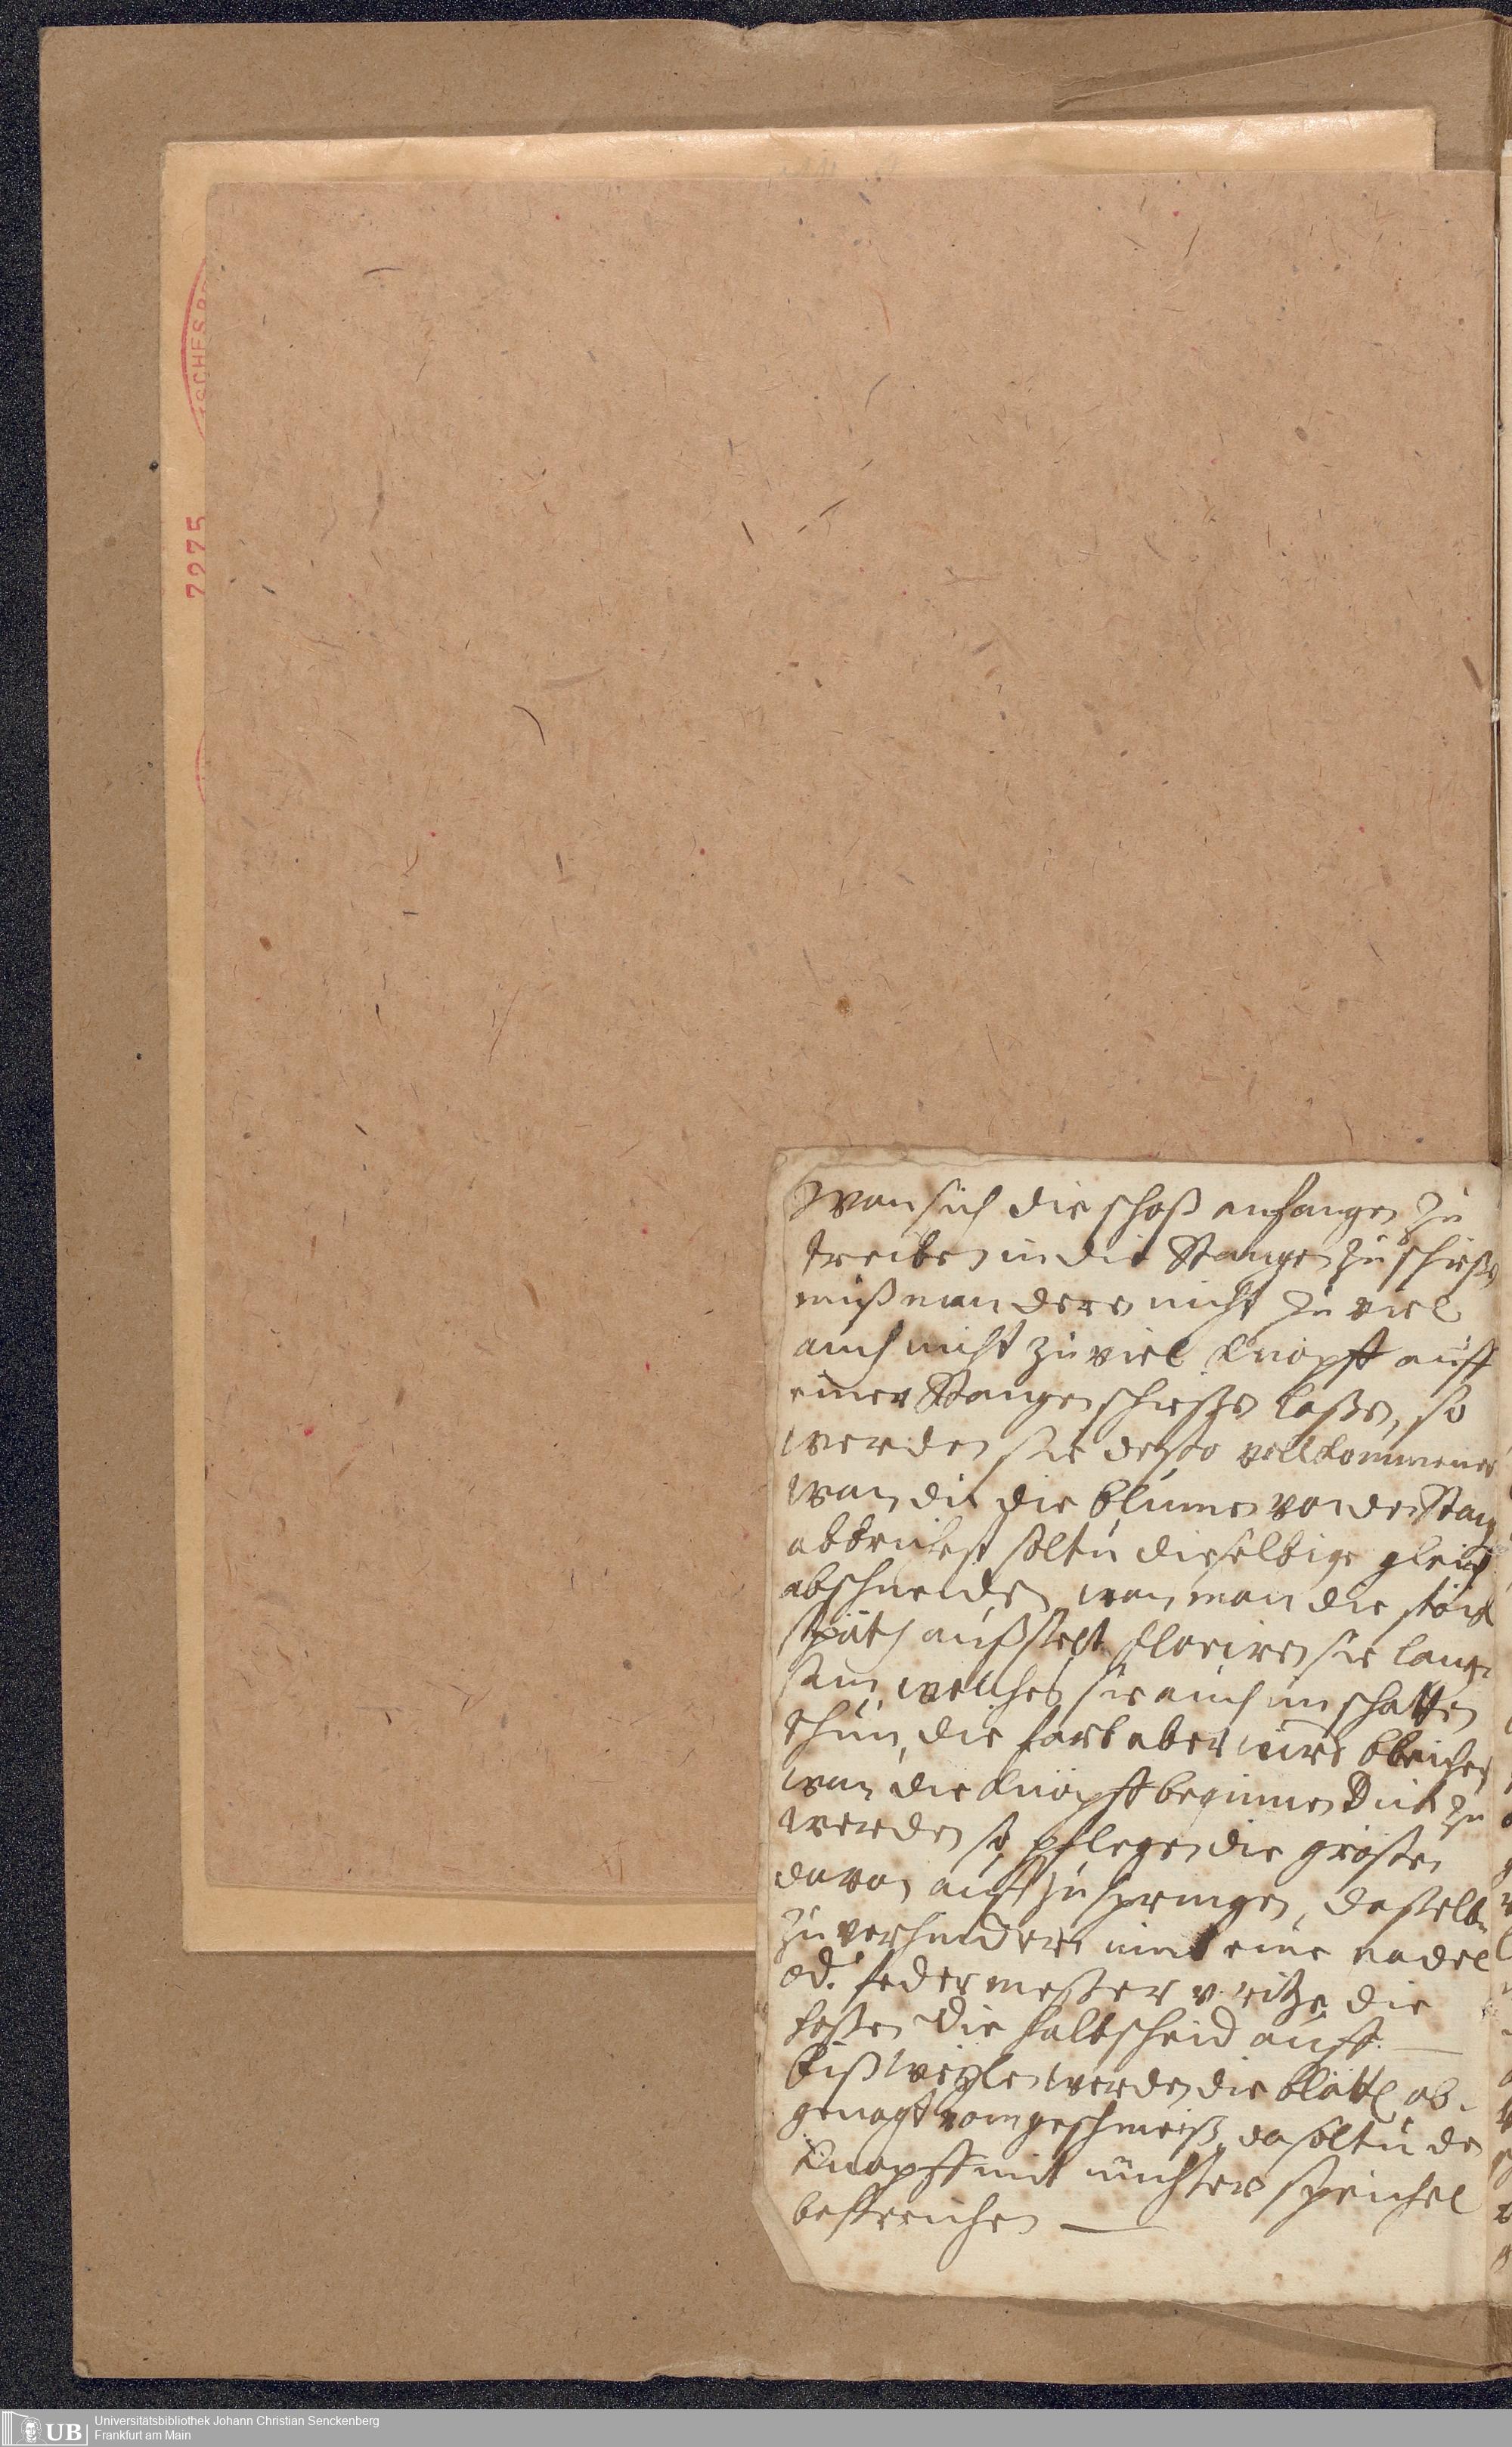 SCHES
7275
wan sich die schoß anfangen zu
treiben in die Stangen zu schießen
muß man deren nicht zu viel
auch nicht zu viel knöpff auff
einer Stangen schießen laßen, so
werden sie desto vollkommener
wan du die blumen von der Stang
abbrichst soltu dieselbige gleich
abschneiden, wan man die stöck
späth außsezt floriren sie lang
sam, welches sie auch im schatten
thun, die farb aber wird bleicher
wan die knöpff beginnen dick zu
werden so pflegen die grösten
davon auff zu springen, daßelbe
zu verhindern nimb eine nadel
od. feder meßer v. ritze die
die halbscheid auff. —
bißweylen werden die blättl ab-
genagt vom geschmeiß, da soltu de
knöpff mit nüchtern speichel
bestreichen —
UB
Universitätsbibliothek Johann Christian Senckenberg
Frankfurt am Main